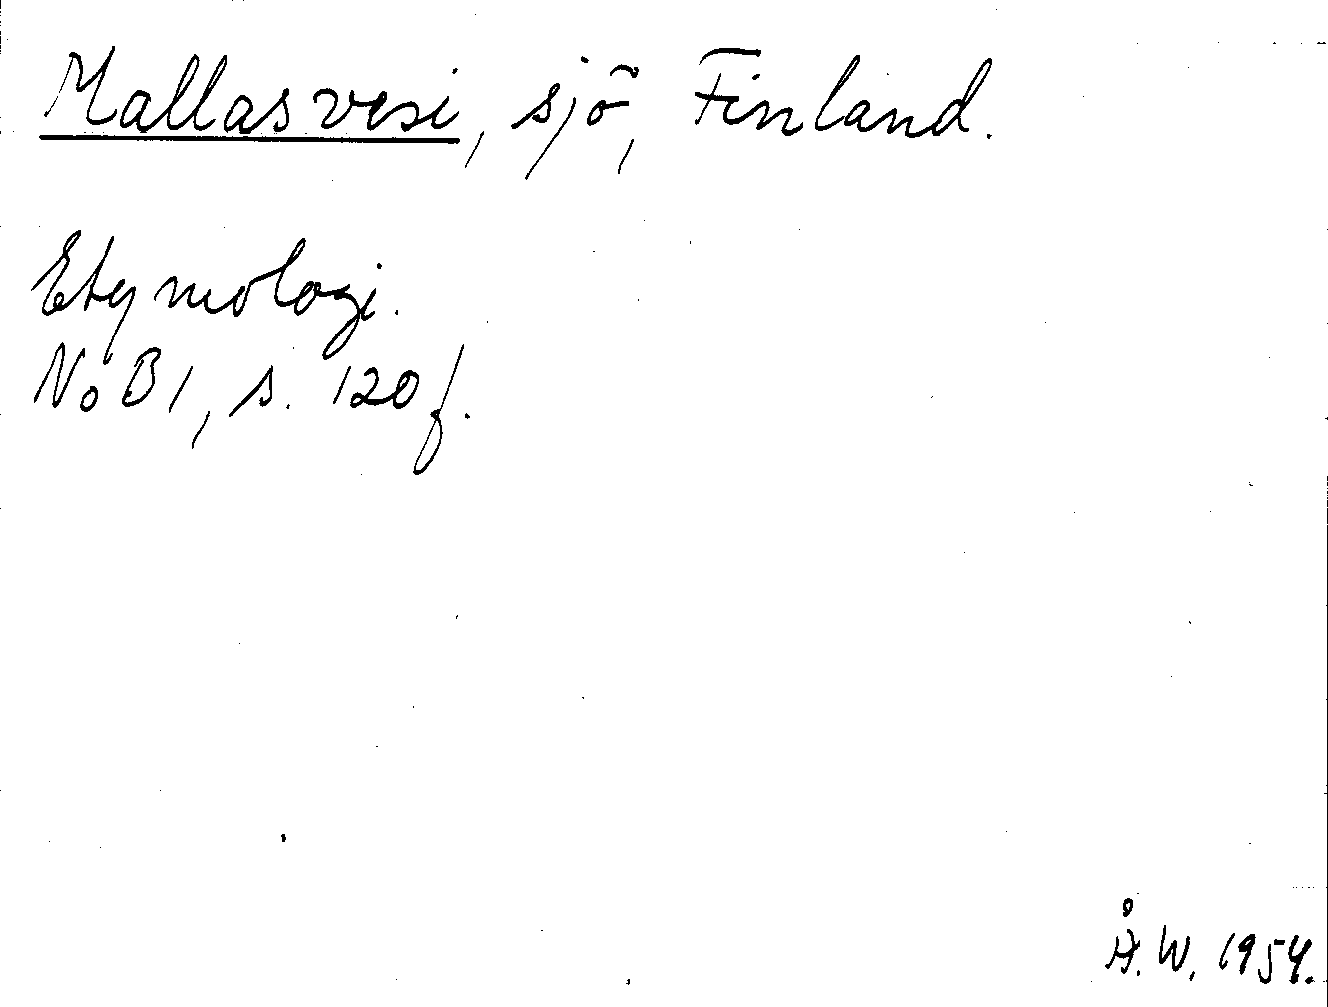 Mallasvesi, sjö, Finland.
Etymologi.
NoB 1, s. 120 f.
Å. W. 1954.